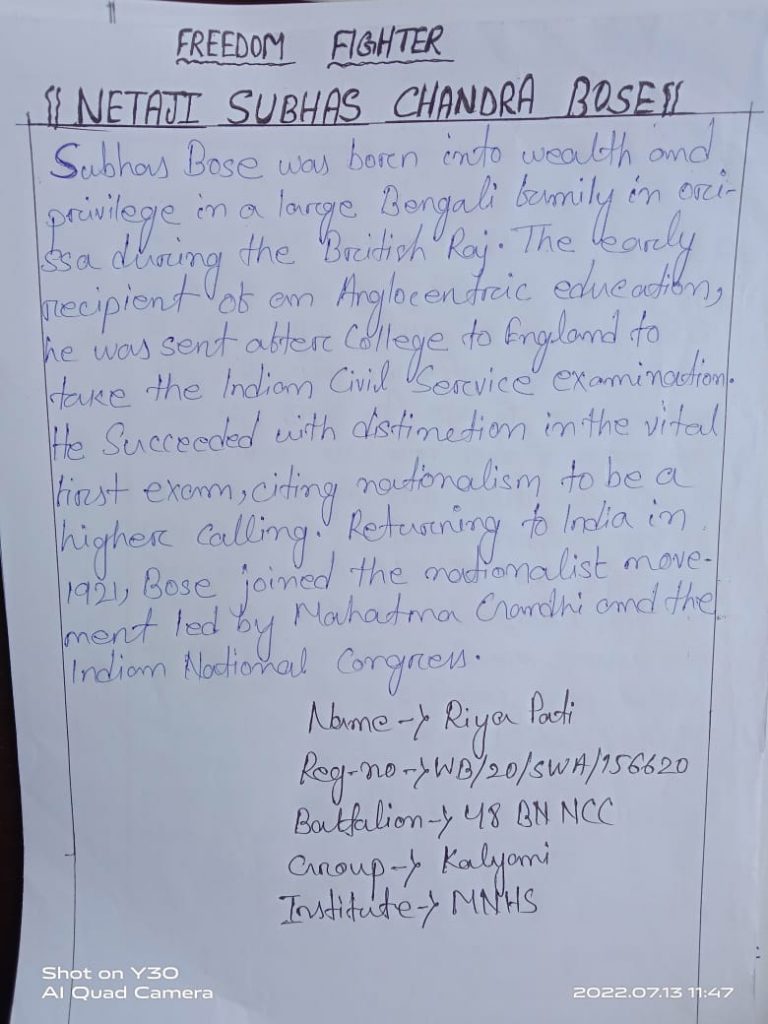 FREEDOM FIGHTER
NETAJI SUBHAS CHANDRA BOSE
Subhas Bose was born into wealth and
privilege in a large Bengali family in ori-
ssa during the British Raj. The early
recipient of an Anglocentric education,
he was sent after College to England to
take the Indian Civil Service examination.
He Succeeded with distinction in the vital
first exam, citing nationalism to be a
higher calling. Returning to India in
1921, Bose joined the nationalist move-
ment led by Mahatma Gandhi and the
Indian National Congress.
Name → Riya Pati
Reg-no → WB/20/SWA/156620
Battalion → 48 BN NCC
Group → Kalyani
Institute → MNHS
Shot on Y30
AI Quad Camera
2022.07.13 11:47